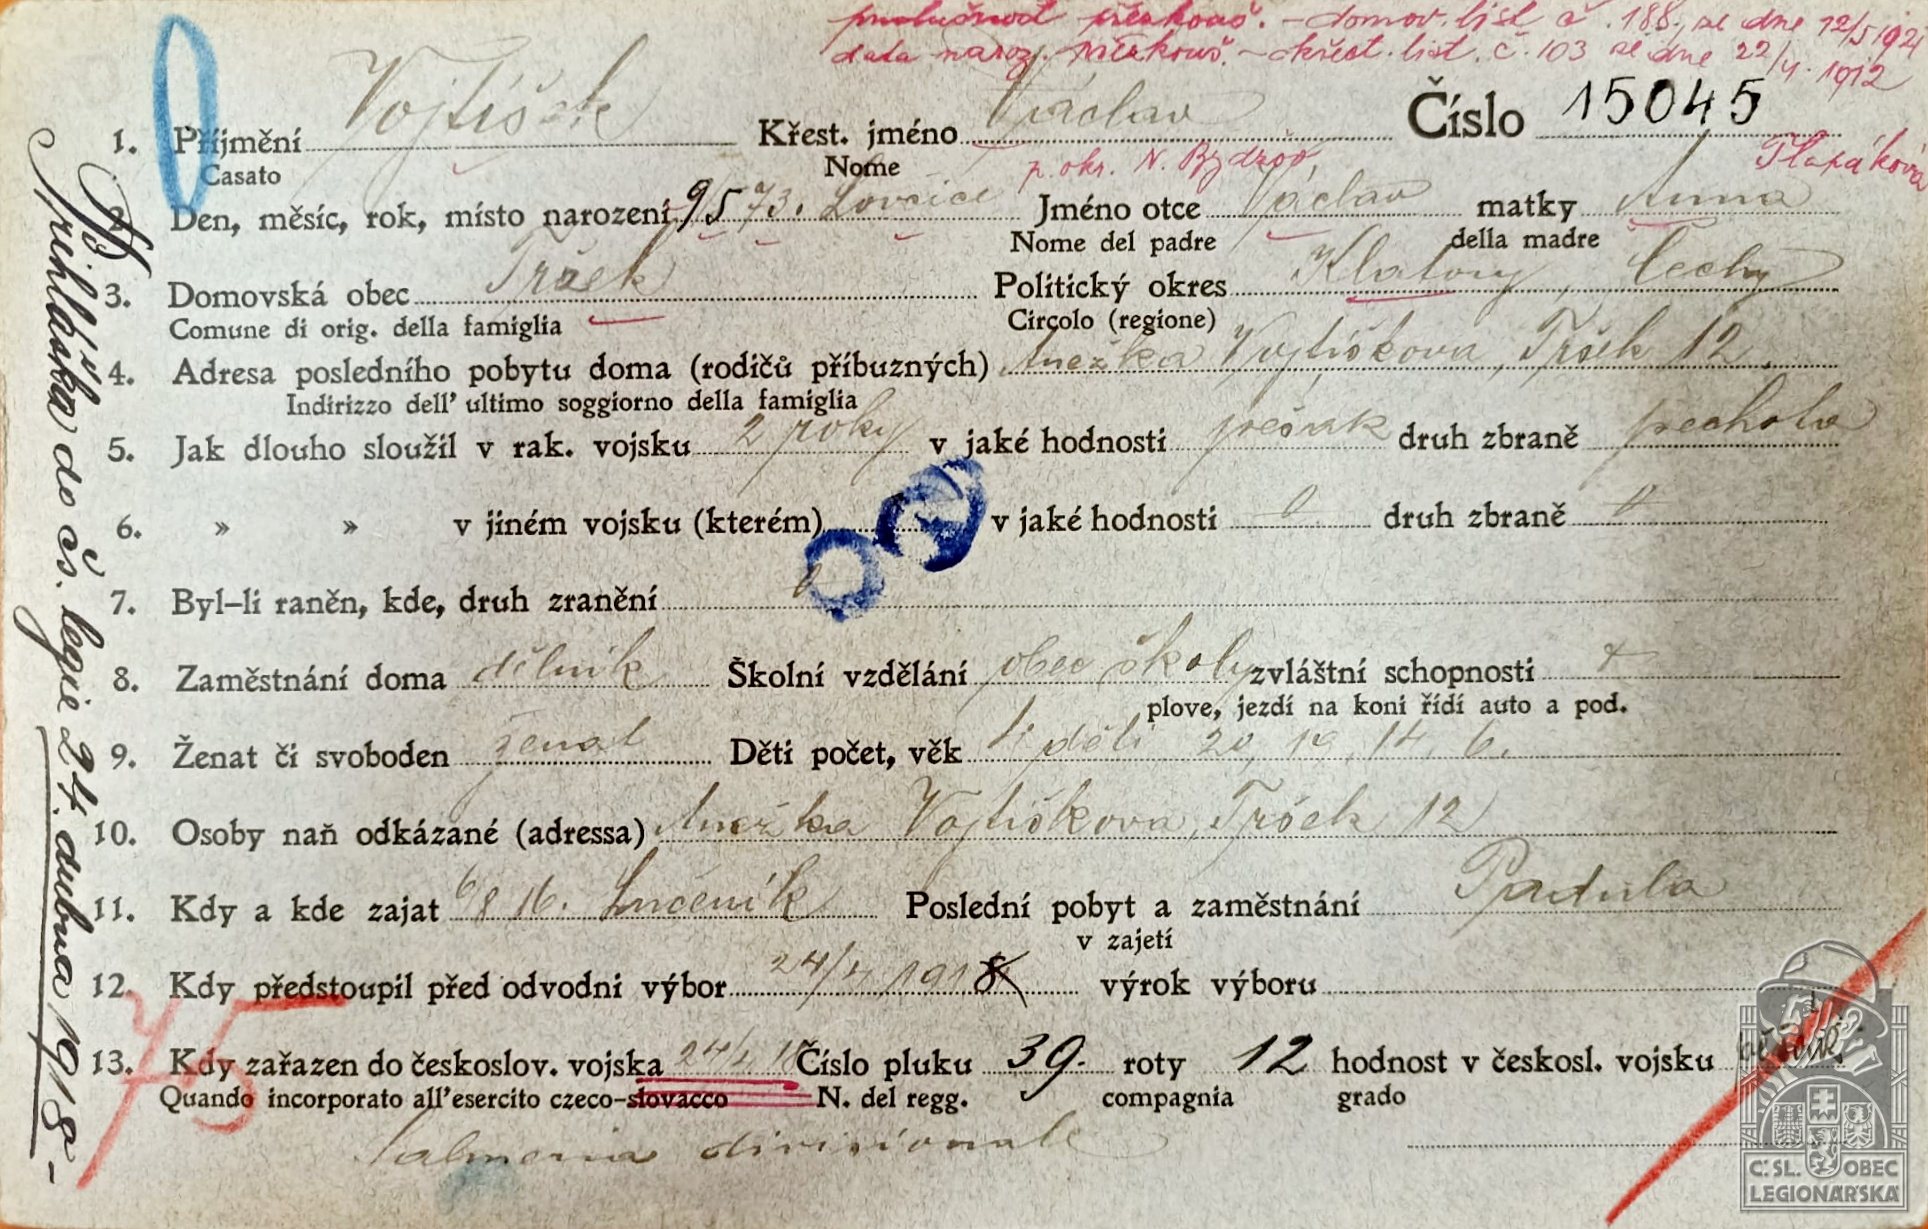 příslušnost přezkouš. – domov. list č. 188., ze dne 12/5 1921
data naroz. přezkouš. – křest. list. č. 103 ze dne 22/4. 1912
Číslo 15045
1. Příjmení Vojtíšek Křest. jméno Václav
Casato Nome
p. okr. N. Bydžov
2. Den, měsíc, rok, místo narození 9 5 73. Lovčice Jméno otce Václav matky Anna
Nome del padre della madre
3. Domovská obec Tržek Politický okres Klatovy, Čechy
Comune di orig. della famiglia Circolo (regione)
4. Adresa posledního pobytu doma (rodičů příbuzných) Anežka Vojtíšková, Tršek 12.
Indirizzo dell' ultimo soggiorno della famiglia
5. Jak dlouho sloužil v rak. vojsku 2 roky v jaké hodnosti pěšák druh zbraně pěchota
6. » » v jiném vojsku (kterém) v jaké hodnosti 0 druh zbraně 0
7. Byl-li raněn, kde, druh zranění 0
8. Zaměstnání doma dělník Školní vzdělání obec školy zvláštní schopnosti
plove, jezdí na koni řídí auto a pod.
9. Ženat či svoboden ženat Děti počet, věk 4 děti 20, 19, 14, 6.
10. Osoby naň odkázané (adressa) Anežka Vojtíšková, Tršek 12
11. Kdy a kde zajat 6/8 16. Poslední pobyt a zaměstnání Padula
v zajetí
12. Kdy předstoupil před odvodni výbor 24/4 1918 výrok výboru
13. Kdy zařazen do českoslov. vojska 24/4 18 Číslo pluku 39. roty 12 hodnost v českosl. vojsku
Quando incorporato all'esercito czeco-slovacco N. del regg. compagnia grado
Salmeria divisionale
Přihláška do čs. legie 24. dubna 1918 –
75
Č. SL. OBEC
LEGIONÁŘSKÁ